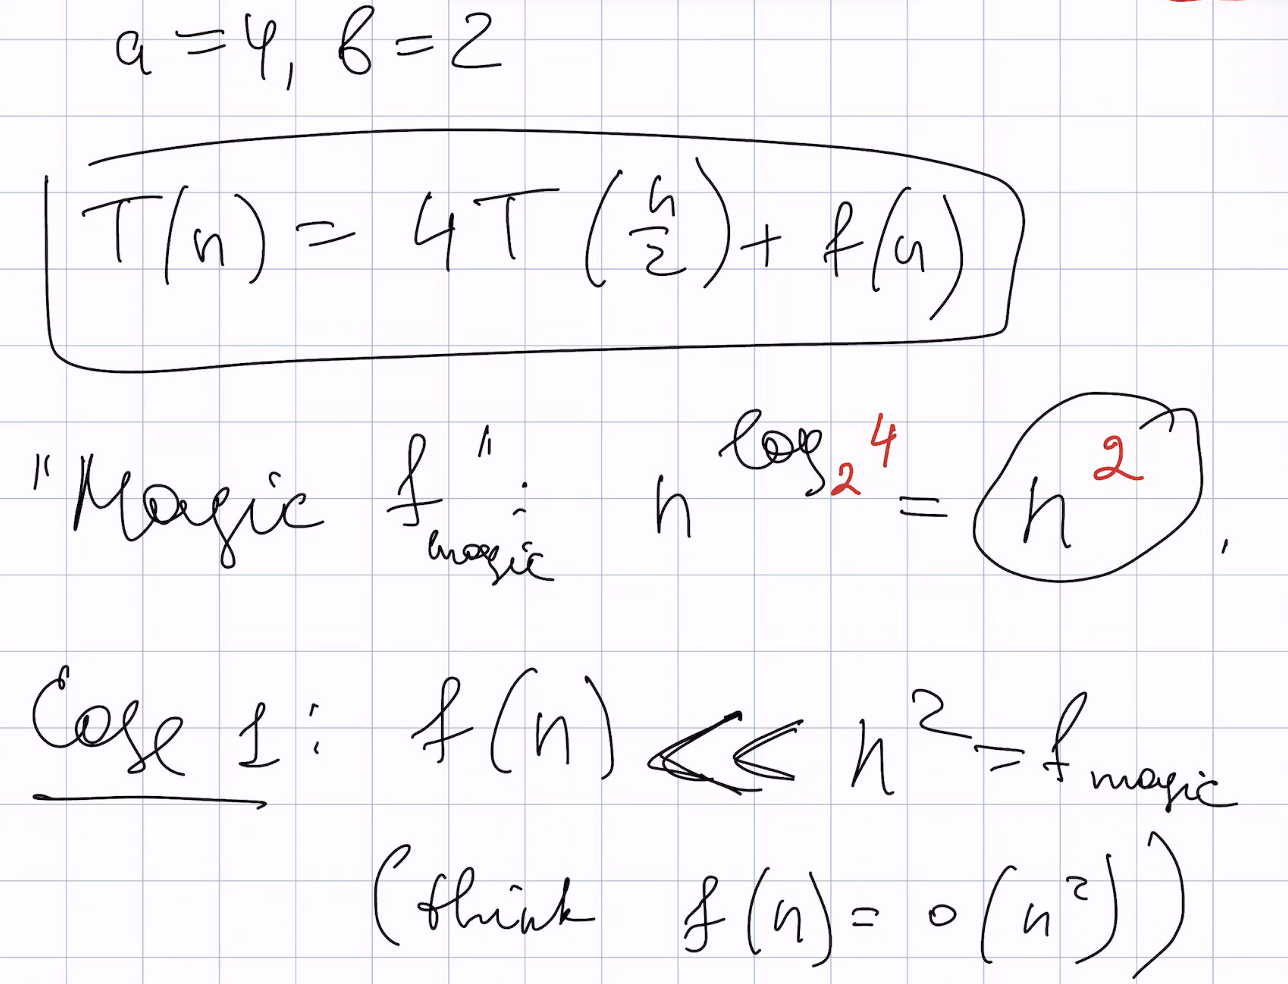 a = 4, b = 2
T(n) = 4T(n/2) + f(n)
"Magic f_magic": n^{log_2 4} = n^2.
Case 1: f(n) << n^2 = f_magic
(think f(n) = o(n^2))